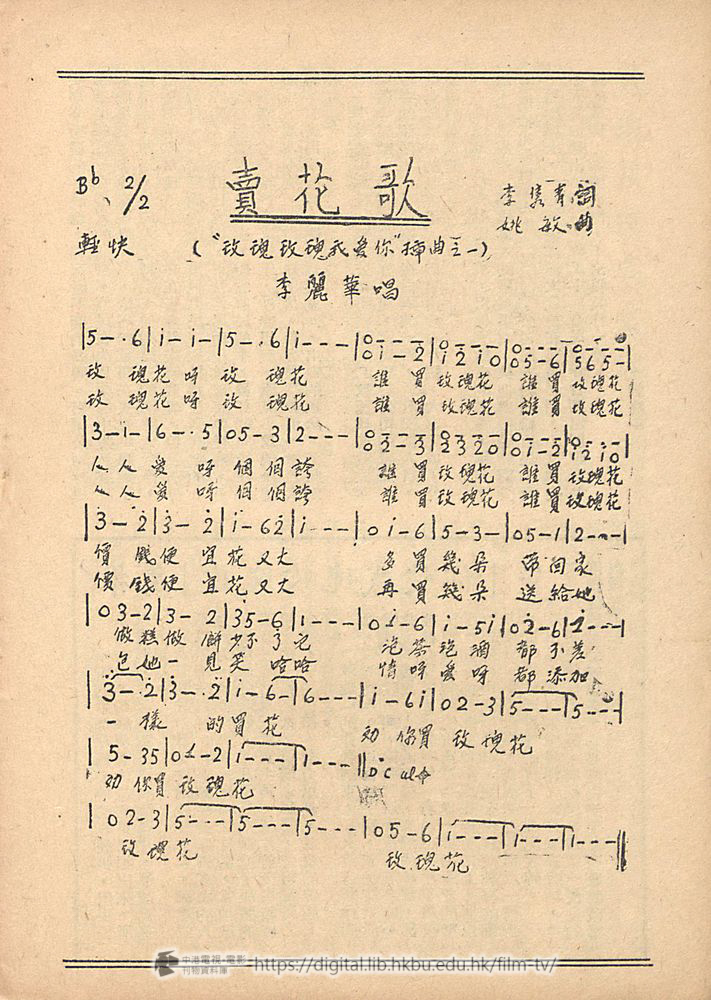 Bb 2/2
賣花歌
李雋青詞
姚敏曲
輕快
("玫瑰玫瑰我愛你"插曲之一)
李麗華唱
|5-·6|i-i-|5-·6|i---|0i-2|i2i0|05-6|565-|
玫瑰花呀玫瑰花 誰買玫瑰花 誰買玫瑰花
玫瑰花呀玫瑰花 誰買玫瑰花 誰買玫瑰花
|3-i-|6-·5|05-3|2---|02-3|2320|0i-2|i2i0|
人人愛呀個個誇 誰買玫瑰花 誰買玫瑰花
人人愛呀個個誇 誰買玫瑰花 誰買玫瑰花
|3-2|3-2|i-62|i---|0i-6|5-3-|05-1|2---|
價錢便宜花又大 多買幾朵 帶回家
價錢便宜花又大 再買幾朵 送給她
|03-2|3-2|35-6|i---|0i-6|i-5i|02-6|i---|
做糕做餅少不了它 泡茶泡酒都不差
包她一見笑哈哈 情呀愛呀都添加
|3-·2|3-·2|i-6-|6---|i-6i|02-3|5---|5---|
一樣的買花 勸你買玫瑰花
|5-35|0i-2|i---|i---||D.C.
勸你買玫瑰花
|02-3|5---|5---|5---|05-6|i---|i---|i---||
玫瑰花 玫瑰花
中港電視·電影
刊物資料庫
https://digital.lib.hkbu.edu.hk/film-tv/